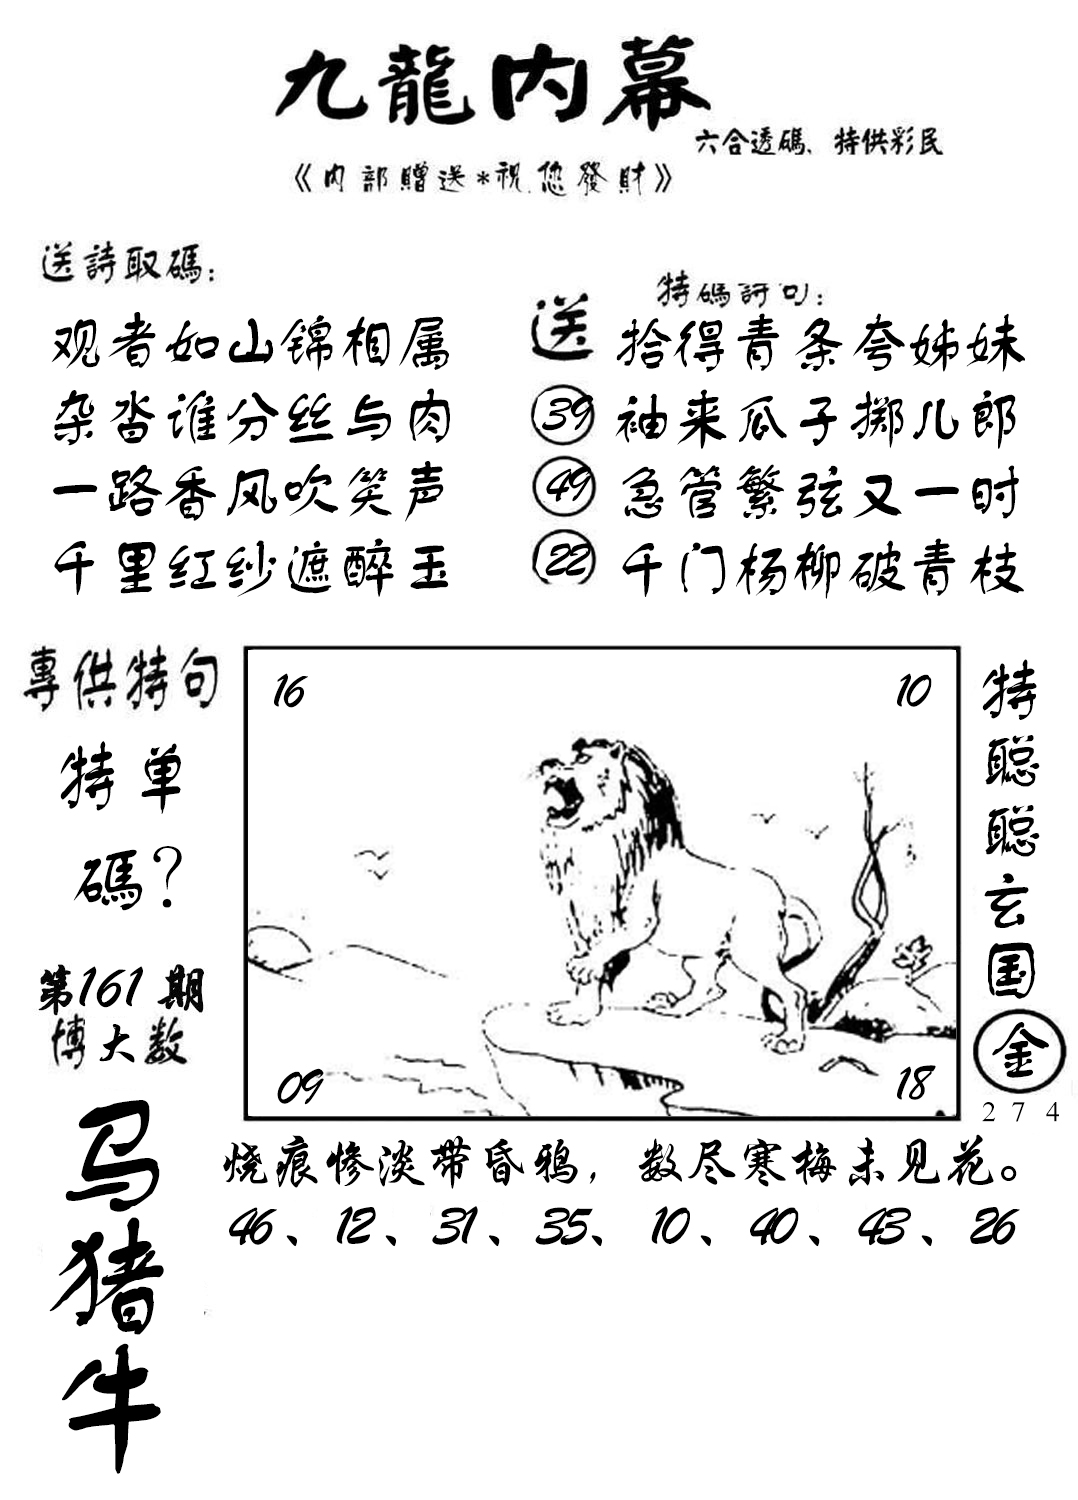 九龍内幕
六合透碼、特供彩民
《内部贈送*祝您發財》
送詩取碼：
观者如山锦相属
杂沓谁分丝与肉
一路香风吹笑声
千里红纱遮醉玉
特碼詩句：
送
39
49
22
拾得青条夸姊妹
袖来瓜子掷儿郎
急管繁弦又一时
千门杨柳破青枝
專供特句
特单
碼？
第161期
博大数
马
猪
牛
16
10
09
18
特
聪
聪
玄
国
金
274
烧痕惨淡带昏鸦，数尽寒梅未见花。
46、12、31、35、10、40、43、26